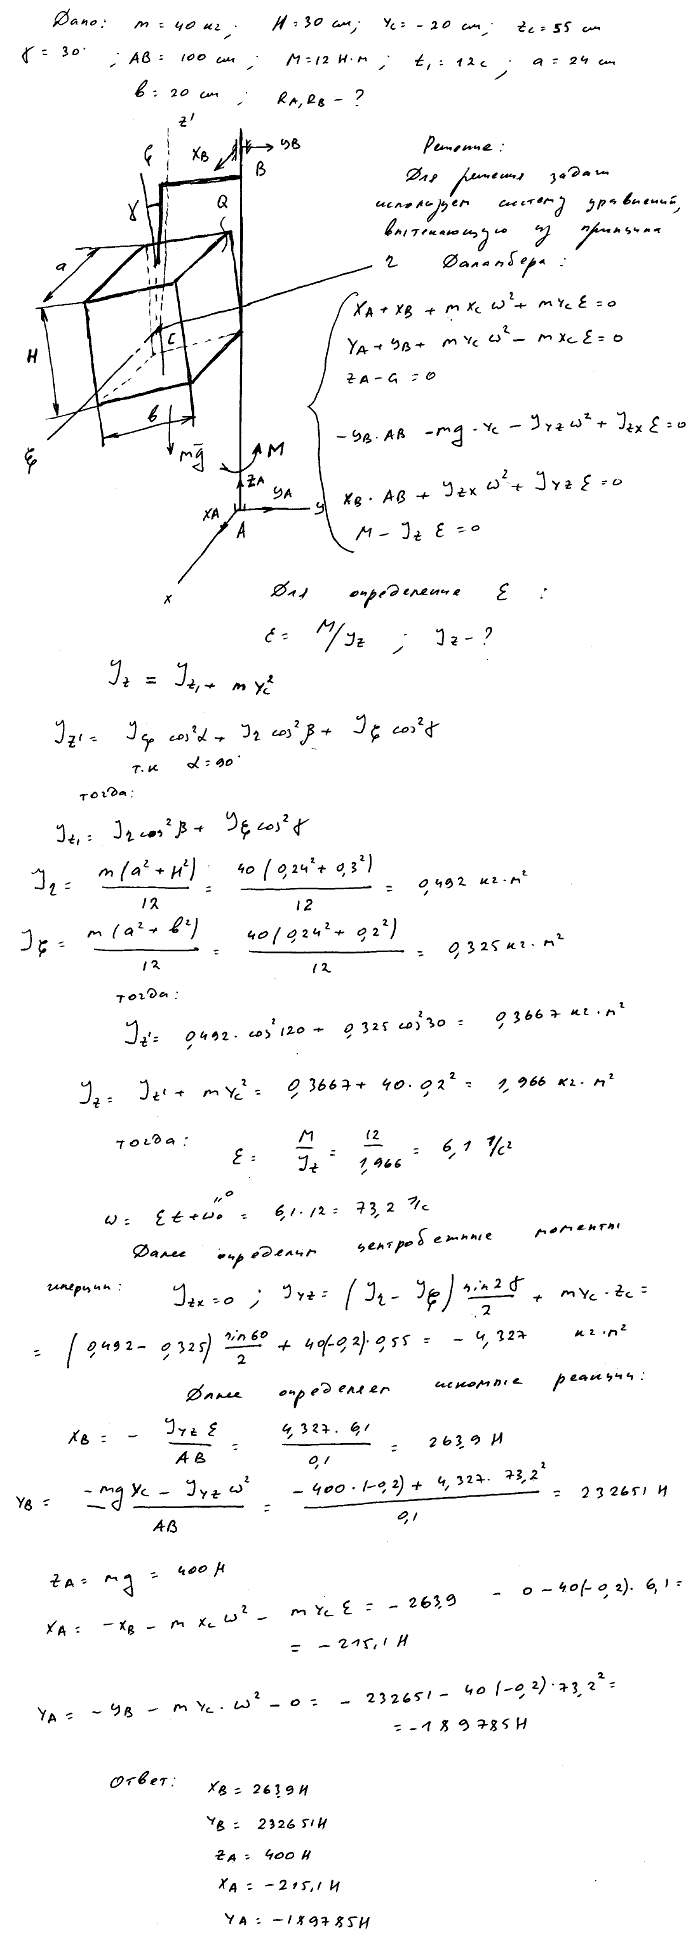 Дано: m = 40 кг; H = 30 cm; Yc = -20 cm; Zc = 55 cm
γ = 30°; AB = 100 cm; M = 12 Н·м; t₁ = 12 c; a = 24 cm
b = 20 cm; RA, RB - ?
z'
ζ
XB
YB
B
γ
Q
a
C
H
b
ξ
mḡ
M
ZA
YA
y
XA
A
x
η
Решение:
Для решения задачи
используем систему уравнений,
вытекающую из принципа
Даламбера:
XA + XB + m Xc ω² + m Yc ε = 0
YA + YB + m Yc ω² - m Xc ε = 0
ZA - G = 0
-YB · AB - mg · Yc - Jyz ω² + Jzx ε = 0
XB · AB + Jzx ω² + Jyz ε = 0
M - Jz ε = 0
Для определение ε :
ε = M/Jz ; Jz - ?
Jz = Jz₁ + m Yc²
Jz' = Jξ cos²α + Jη cos²β + Jζ cos²γ
т.к α = 90°
тогда:
Jz₁ = Jη cos²β + Jζ cos²γ
Jη = m(a² + H²)/12 = 40(0,24² + 0,3²)/12 = 0,492 кг·м²
Jζ = m(a² + b²)/12 = 40(0,24² + 0,2²)/12 = 0,325 кг·м²
тогда:
Jz' = 0,492 · cos²120 + 0,325 cos²30 = 0,3667 кг·м²
Jz = Jz' + m Yc² = 0,3667 + 40 · 0,2² = 1,966 кг·м²
тогда: ε = M/Jz = 12/1,966 = 6,1 1/c²
ω = εt + ω₀ = 6,1 · 12 = 73,2 1/c
"0
Далее определим центробежные моменты
инерции: Jzx = 0 ; Jyz = (Jη - Jζ) sin2γ/2 + m Yc · Zc =
= (0,492 - 0,325) sin60/2 + 40(-0,2)·0,55 = -4,327 кг·м²
Далее определяем искомые реакции:
XB = - Jyz ε/AB = 4,327 · 6,1/0,1 = 263,9 Н
YB = -mg Yc - Jyz ω²/AB = -400·(-0,2) + 4,327 · 73,2²/0,1 = 232651 Н
ZA = mg = 400 Н
XA = -XB - m Xc ω² - m Yc ε = -263,9 - 0 - 40(-0,2) · 6,1 =
= -215,1 Н
YA = -YB - m Yc · ω² - 0 = -232651 - 40(-0,2) · 73,2² =
= -189785 Н
Ответ: XB = 263,9 Н
YB = 232651 Н
ZA = 400 Н
XA = -215,1 Н
YA = -189785 Н